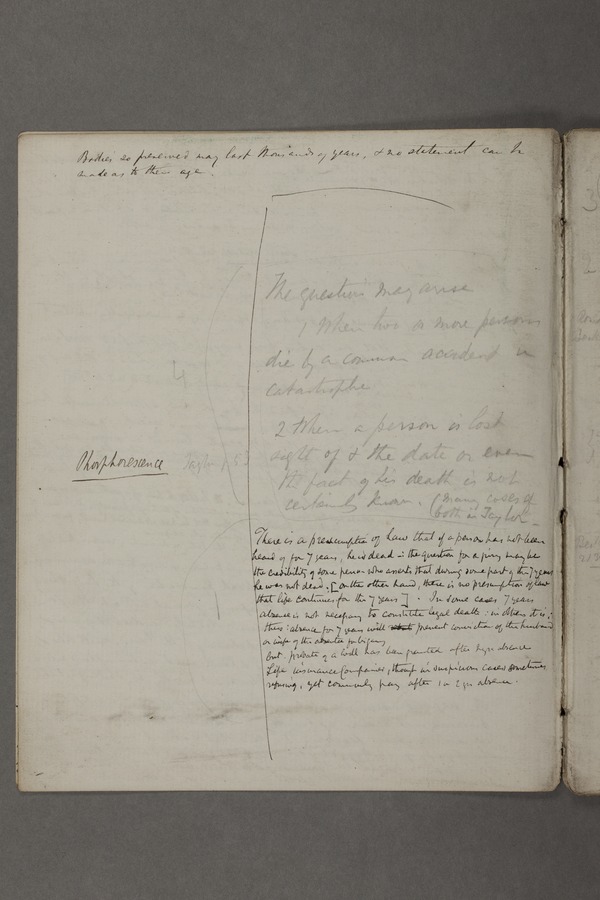 Bodies so preserved may last thousands of years, & no statement can be
made as to their age.
The question may arise
1 When two or more persons
die by a common accident or
catastrophe
2 When a person is lost
sight of & the date or even
the fact of his death is not
certainly known. (Many cases of
both in Taylor
Phosphorescence
There is a presumption of Law that if a person has not been
heard of for 7 years, he is dead ∴ the question for a jury may be
the credibility of some person who asserts that during some part of the 7 years
he was not dead. [on the other hand, there is no presumption of law
that life continues for the 7 years]. In some cases 7 years
absence is not necessary to constitute legal death: in others it is:
thus: absence for 7 years will prevent conviction of the husband
or wife of the absentee for bigamy
but probate of a will has been granted after absence
Life insurance Companies, though in suspicious cases sometimes
refusing, yet commonly pay after 1 or 2 yrs absence.